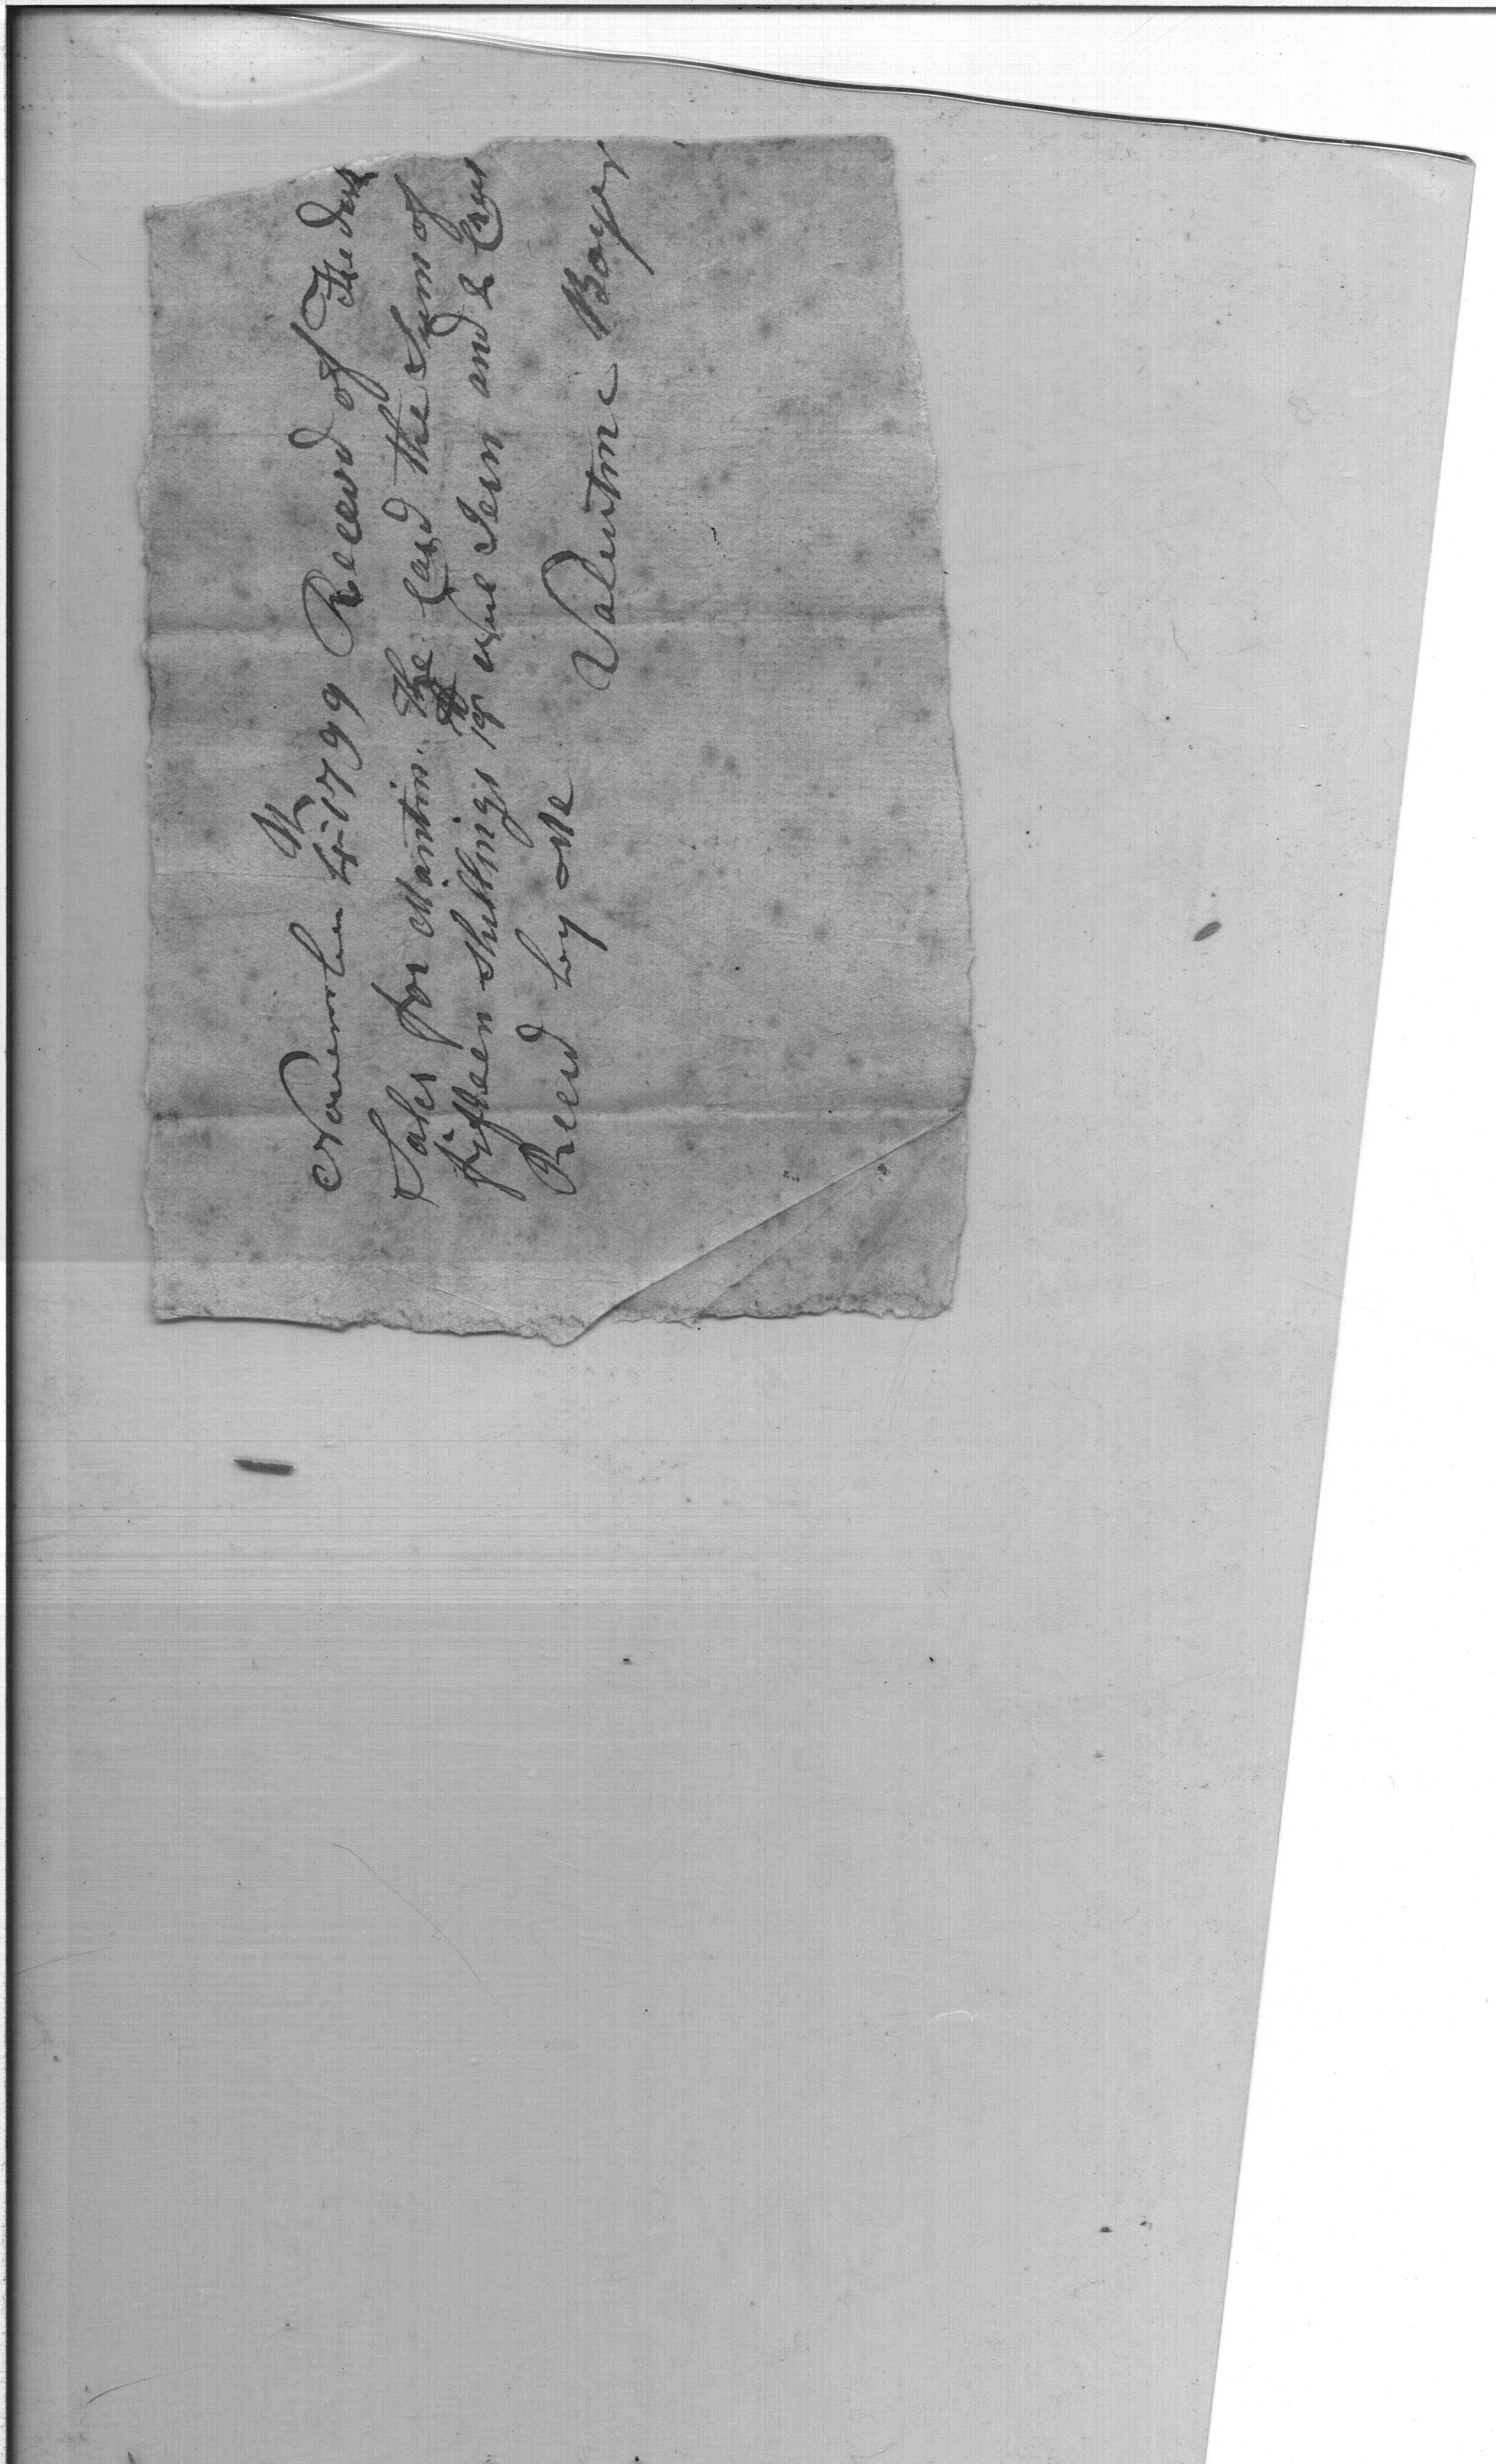 November 4th 1799 Receivd of Fredrik
Saler for Mantin the Card the Sum of
fifteen Shillings 1 pr wul Iern and 2 Crus
Recvd by Me Valentine Boyer